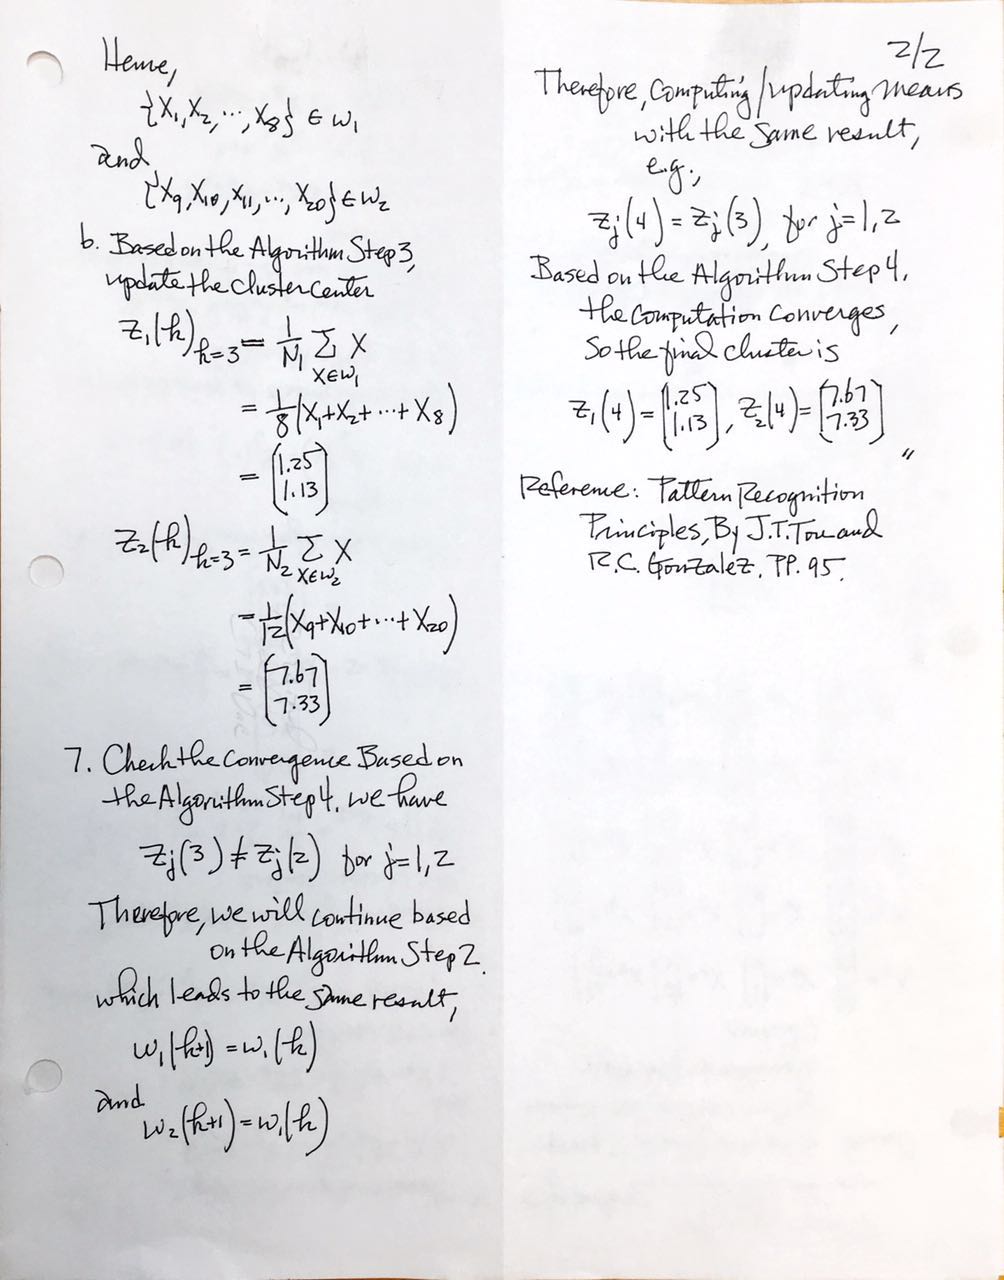 2/2
Hence,
{X₁, X₂, ..., X₈} ∈ ω₁
and
{X₉, X₁₀, X₁₁, ..., X₂₀} ∈ ω₂
6. Based on the Algorithm Step 3,
update the cluster center
Z₁(k)ₖ₌₃ = 1/N₁ Σ X
X∈ω₁
= 1/8 (X₁+X₂+ ... + X₈)
= (1.25
1.13)
Z₂(k)ₖ₌₃ = 1/N₂ Σ X
X∈ω₂
= 1/12 (X₉+X₁₀+ ... + X₂₀)
= (7.67
7.33)
7. Check the Convergence Based on
the Algorithm Step 4. we have
Zⱼ(3) ≠ Zⱼ(2) for j=1,2
Therefore, we will continue based
on the Algorithm Step 2.
which leads to the same result,
ω₁(k+1) = ω₁(k)
and
ω₂(k+1) = ω₁(k)
Therefore, Computing/updating means
with the same result,
e.g.,
Zⱼ(4) = Zⱼ(3), for j=1,2
Based on the Algorithm Step 4.
the Computation Converges,
So the final cluster is
Z₁(4) = (1.25 1.13), Z₂(4) = (7.67 7.33)
"
Reference: Pattern Recognition
Principles, By J.T. Tou and
R.C. Gonzalez, PP. 95.